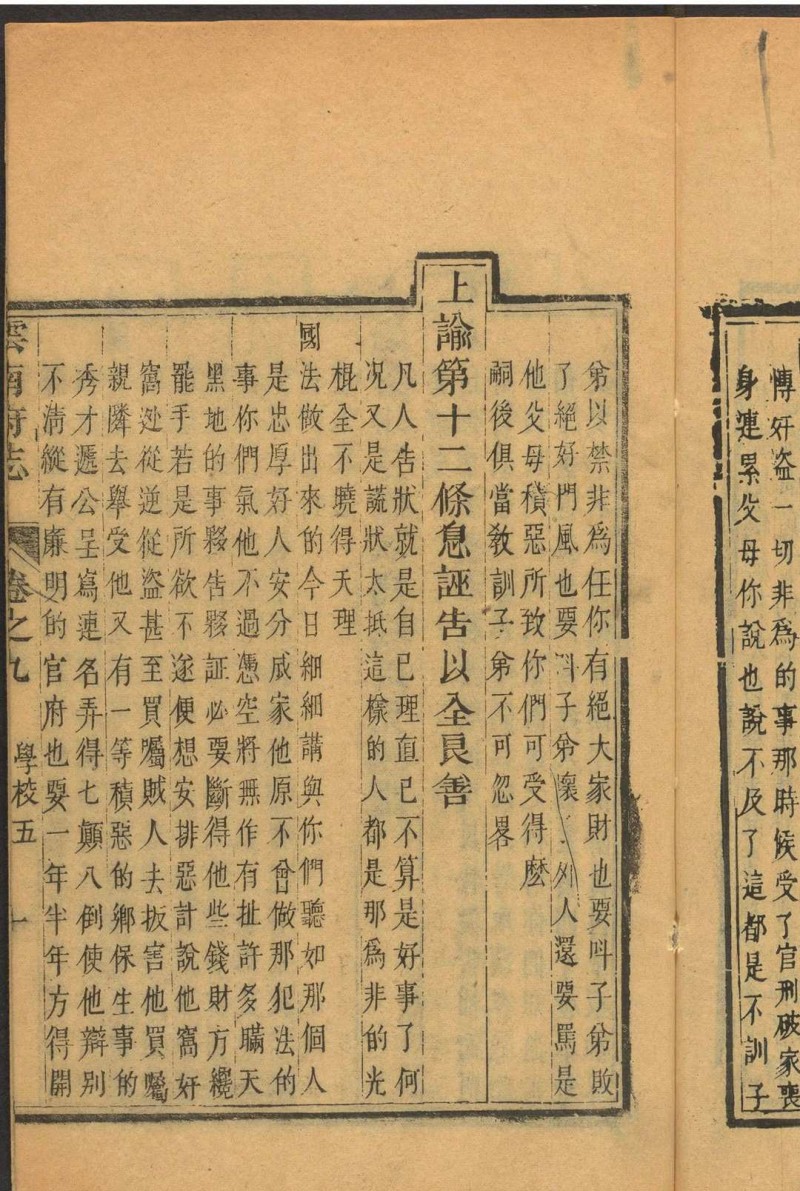 愽奸盗一切非爲的事那時候受了官刑破家喪
身連累父母你說也說不及了這都是不訓子
弟以禁非爲任你有絕大家財也要呌子弟敗
了絕好門風也要呌子弟壞了外人還要罵是
他父母積惡所致你們可受得麽
嗣後俱當敎訓子弟不可忽畧
上諭第十二條息誣告以全良善
凡人告狀就是自已理直已不算是好事了何
况又是謊狀太抵這樣的人都是那爲非的光
棍全不曉得天理
國法做出來的今日細細講與你們聽如那個人
是忠厚好人安分成家他原不曾做那犯法的
事你們氣他不過憑空將無作有扯許多瞞天
黑地的事夥告夥証必要斷得他些錢財方纔
罷手若是所欲不遂便想安排惡計說他窩奸
窩逃從逆從盜甚至買囑賊人去扳害他買囑
親隣去舉受他又有一等積惡的鄉保生事的
秀才遞公呈寫連名弄得七顛八倒使他辯别
不淸縱有廉明的官府也要一年半年方得開
雲南府志 卷之九 學校五